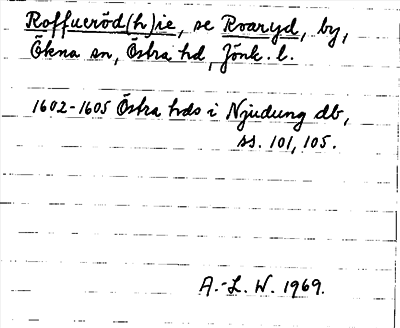 Roffueröd(h)ie, se Roaryd, by,
Ökna sn, Östra hd, Jönk. l.
1602-1605 Östra hds i Njudung db,
ss. 101, 105.
A.-L. W. 1969.